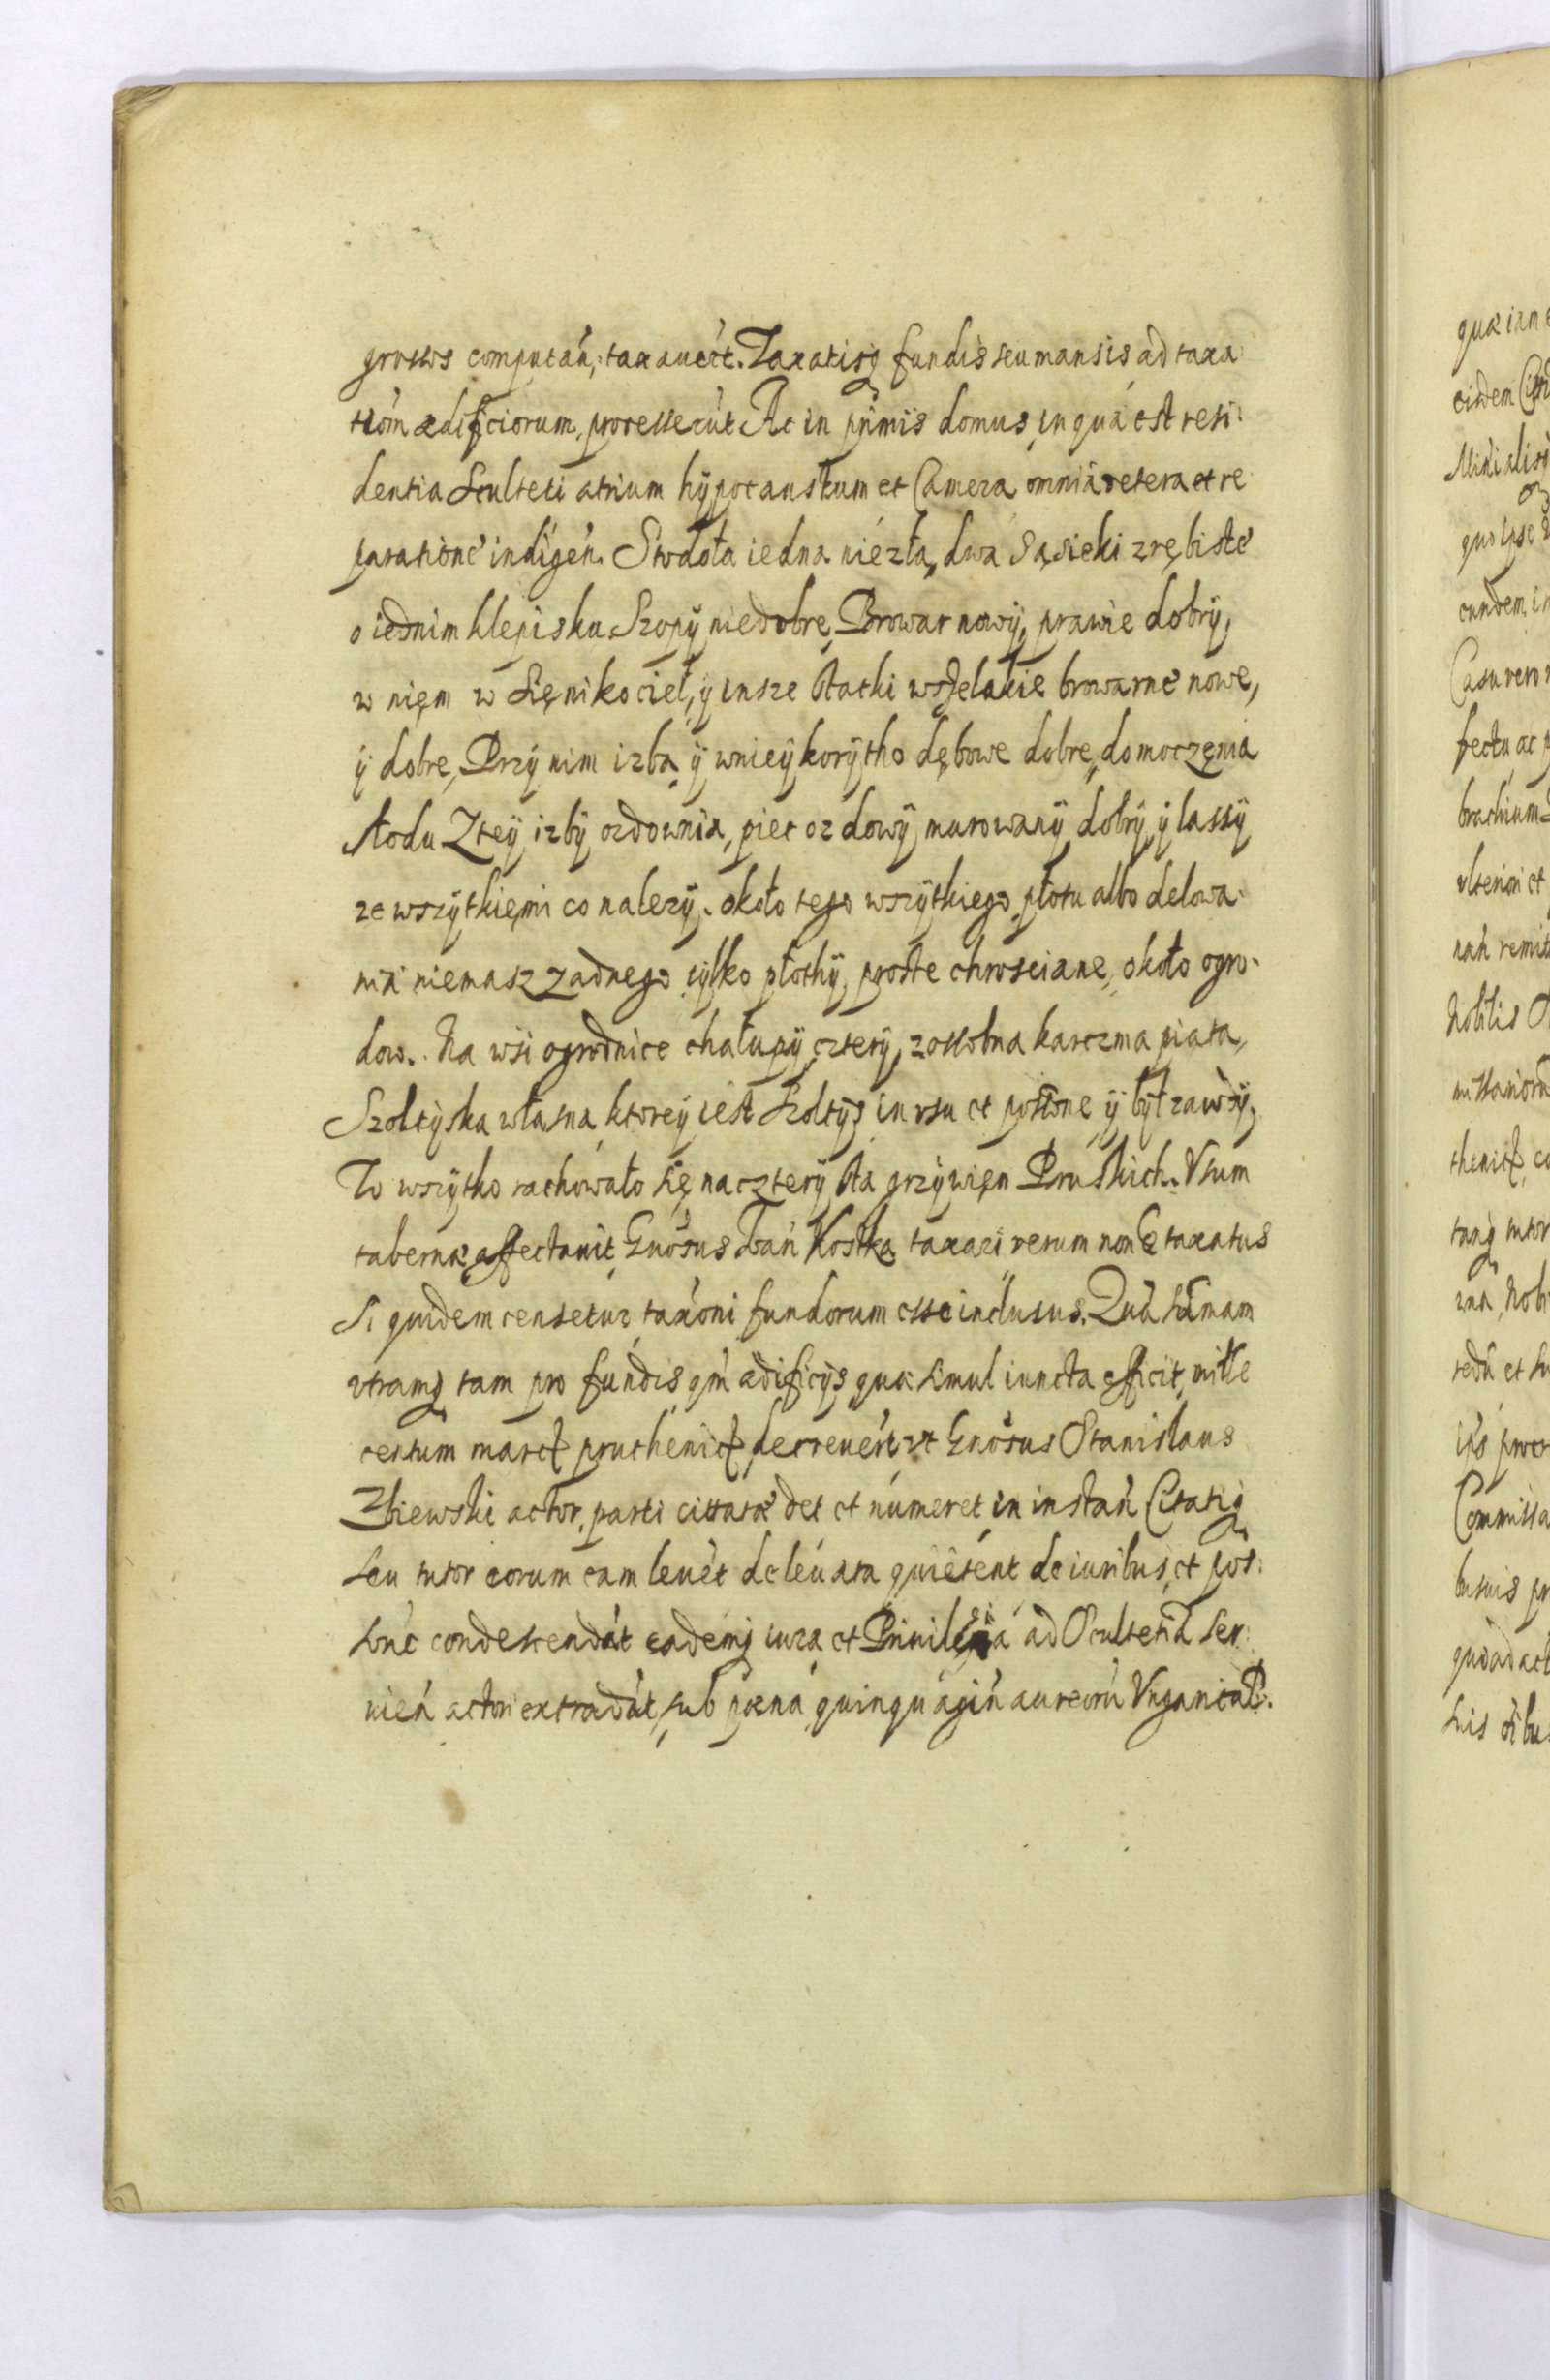 grossos computań, taxauert. Taxatisq fundis seu mansis ad taxa
tiom ædificiorum, processerut Ac in primis domus, in qua est resi
dentia Sculteti atrium hÿpocaustum et Camera omnia vetera et re
paratione indigen. Stodoła iedna niezła, dwa Sąsieki zrębiste
o iednim klepisku. Szopÿ niedobre, Browar nowÿ, prawie dobrÿ,
w nięm w Się ni kocieł, ÿ insze statki wszelakie browarne nowe,
ÿ dobre, Przÿ nim izba ÿ wnieÿ korÿtho dębowe dobre, do moczęnia
słodu Zteÿ izbÿ ozdownia, piec ozdowÿ murowanÿ dobrÿ, ÿ lassÿ
ze wszÿtkięmi co nalezÿ. około tego wszÿtkiego płotu albo delowa
nia niemasz zadnego tÿlko płothÿ proste chrosciane, około ogro-
dow. Na wsi ogrodnice chałupÿ czterÿ, zossobna karczma piata,
Szołtÿska własna, ktoreÿ iest Szoltÿs in vsu et possone ÿ bÿł zawszÿ,
To wszÿtko rachowało się na czterÿ sta grzÿwięn Pruskich. Vsum
tabernæ affectauit Gnosus Joan Kostka taxari verum non e taxatus
Si quidem censetur taxoni fundorum esse inclusus. Qua sumam
vtramq tam pro fundis qm ædificÿs quæ simul iuncta efficit mille
centum marc pruthenic decreuert vt Gnosus Stanislaus
Zbiewski actor, parti cittatæ det et numeret in instan Citatiq
seu tutor eorum eam leuet de leuata quietent de iuribus, et pos
sone condescendat eademq iura et Priuilegia ad Scultetia ser
uien actori extradat, sub pæna quinquagin aureoru Vngarical.